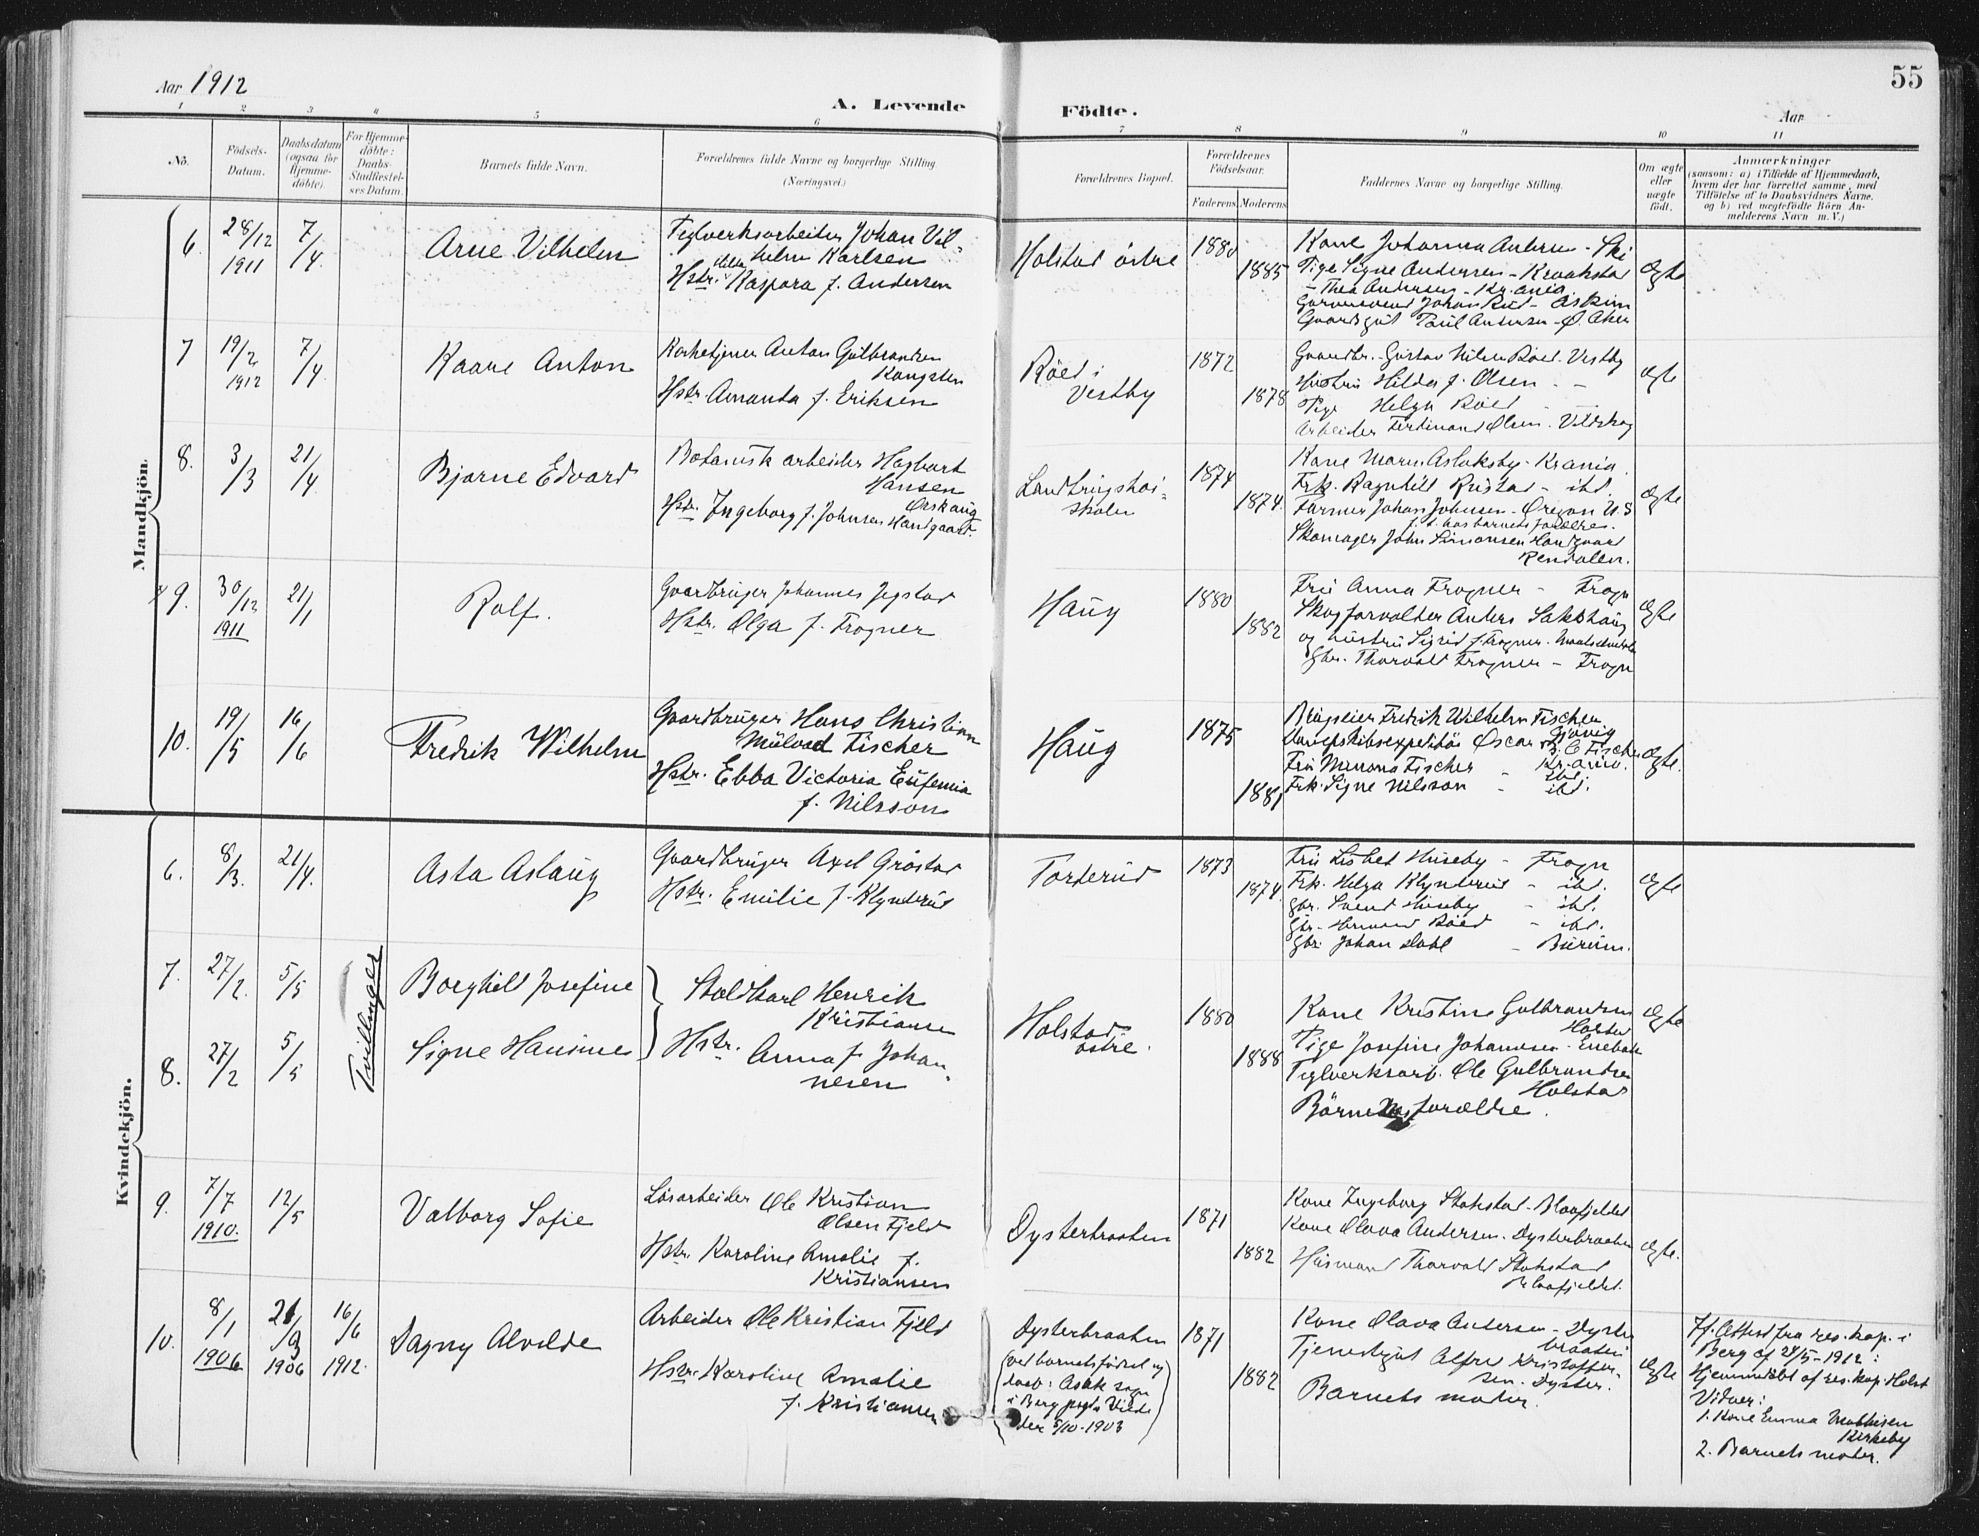 Aar 1912
A. Levende Födte.
55
Aar
1 2 3 4 5 6 7 8 9 10 11
No.
Födsels-Datum.
Daabsdatum (ogsaa for Hjemme-döbte).
For Hjemme-döbte: Daabs-Stadfestel-ses Datum.
Barnets fulde Navn.
Forældrenes fulde Navne og borgerlige Stilling (Næringsvei.)
Forældrenes Bopæl.
Forældrenes Födselsaar.
Faderens. Moderens.
Faddernes Navne og borgerlige Stilling.
Om ægte eller uægte födt.
Anmærkninger
(saasom: a) i Tilfælde af Hjemmedaab, hvem der har forrettet samme, med Tilföielse af to Daabsvidners Navne. og b) ved uægtefödte Börn An-melderens Navn m. V.)
Mandkjön.
6. 28/12 1911 7/4
Arne Vilhelm
Teglverksarbeider Johan Vil-
helm Karlsen
Hstr. Kaspara f. Andersen
Holstad östre
1880
1885
Kone Johanna Andersen - Ski
Pige Signe Andersen - Kraakstad
- Thea Andersen - Kr.ania
Garversvend Johan Rud - Askim
Gaardsgut Paul Andersen - Ø. Aker
Ægte
7 19/2 1912 7/4
Kaare Anton
Kirketjener Anton Gulbrandsen
Kongsten
Hstr. Amanda f. Eriksen
Röed i
Vestby
1872
1878
Gaardbr. Gustav Nilsen Röed. Vestby
Hustru Hilda f. Olsen - -
Pige Helga Röed - -
Arbeider Ferdinand Olsen.
Ægte
8. 3/3 21/4
Bjarne Edvard
Botanisk arbeider Hagbart
Hansen
Örskaug
Hstr. Ingeborg f. Johnsen Handgaard.
Landbrugshøi-
skolen
1874
1874.
Kone Maren Aslaksby - Kr.ania.
Frk. Ragnhild Rustad - ibd.
Farmer Johan Johnsen - Oregon U.S
f. t. hos barnets forældre.
Skomager John Simonsen Handgaard
Rendalen.
Ægte
9. 30/12 1911 21/1
Rolf.
Gaardbruger Johannes Jegstad
Hstr. Olga f. Frogner
Haug
1880
1882
Fru Anna Frogner - Frogn
Skogforvalter Anders Sakshaug
og hustru Sigrid f. Frogner.
Gbr. Thorvald Frogner - Frogn
Ægte
10. 19/5 16/6
Fredrik Wilhelm
Gaardbruger Hans Christian
Mülvad Fischer
Hstr. Ebba Victoria Eufemia
f. Nilsson
Haug
1875
1881
Brugseier Fredrik Wilhelm Fischer
Gjövig
Dampskibsexpeditör Oscar B. C. Fischer
Kr.ania.
Fru Minona Fischer - ibd.
Frk. Signe Nilsson - ibd.
Ægte.
Kvindekjön.
6. 8/3. 21/4.
Asta Aslaug
Gaardbruger Axel Gröstad
Hstr. Emilie f. Klynderud
Torderud
1873
1874.
Fru Lisbet Huseby - Frogn
Frk. Helga Klynderud - ibd.
Gbr. Svend Huseby - ibd.
Gbr. Herman Röed - ibd.
Gbr. Johan Dahl - Bærum.
Ægte
7. 27/2. 5/5
Tvillinger
Borghild Josefine
8. 27/2 5/5
Signe Hansine
Staldkarl Henrik
Kristiansen
Hstr. Anna f. Johan-
nesen
Holstad
östre.
1880
1888
Kone Kristine Gulbrandsen
Holstad
Pige Josefine Johannesen - Enebak
Teglverksarb. Ole Gulbrandsen
Holstad
Börnenes forældre.
Ægte
9. 7/7 1910. 12/5
Valborg Sofie
Lösarbeider Ole Kristian
Olsen Fjeld
Hstr. Karoline Amalie f.
Kristiansen
Dysterbraaten
1871
1882
Kone Ingeborg Stokstad - Blaafjeldet
Kone Olava Andersen. Dysterbraaten
Husmand Thorvald Stokstad
Blaafjeldet.
Ægte.
10. 8/1 1906 21/3 1906 16/6 1912.
Dagny Alvilde
Arbeider Ole Kristian Fjeld
Hstr. Karoline Amalie
f. Kristiansen
Dysterbraaten
(ved barnets födsel og
daab: Asak sogn
i Berg
5/10-1903)
1871
1882
Kone Olava Andersen - Dyster
braaten
Tjenestgut Alfred Kristoffer-
sen. Dyster.
Barnets moder.
Ægte
Jf. Attest fra res. kap. i
Berg af 24/5-1912:
Hjemmedöbt af res. kap. Holst
Vidner:
1. Kone Emma Mathisen
Kirkeby
2. Barnets moder.